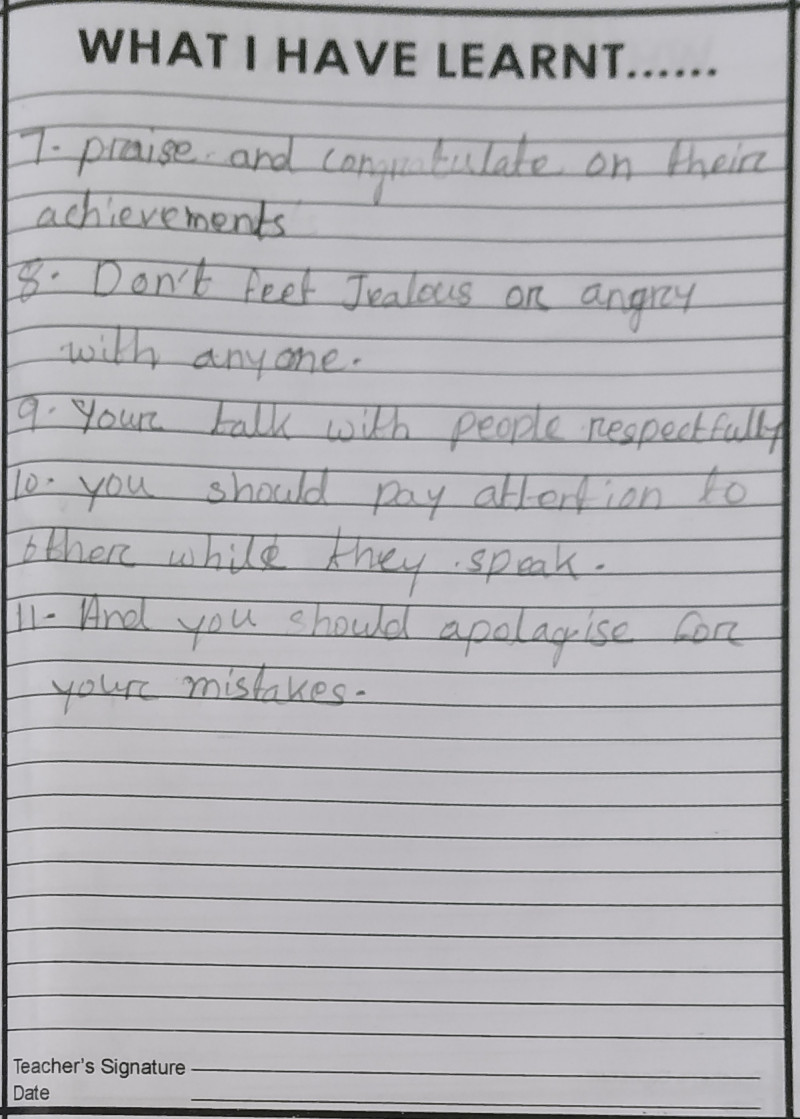 WHAT I HAVE LEARNT......
7. praise and congratulate on their
achievements
8. Don't feet Jealous or angry
with anyone.
9. Your talk with people respectfully
10. you should pay attention to
other while they speak.
11. And you should apolagise for
your mistakes.
Teacher's Signature
Date